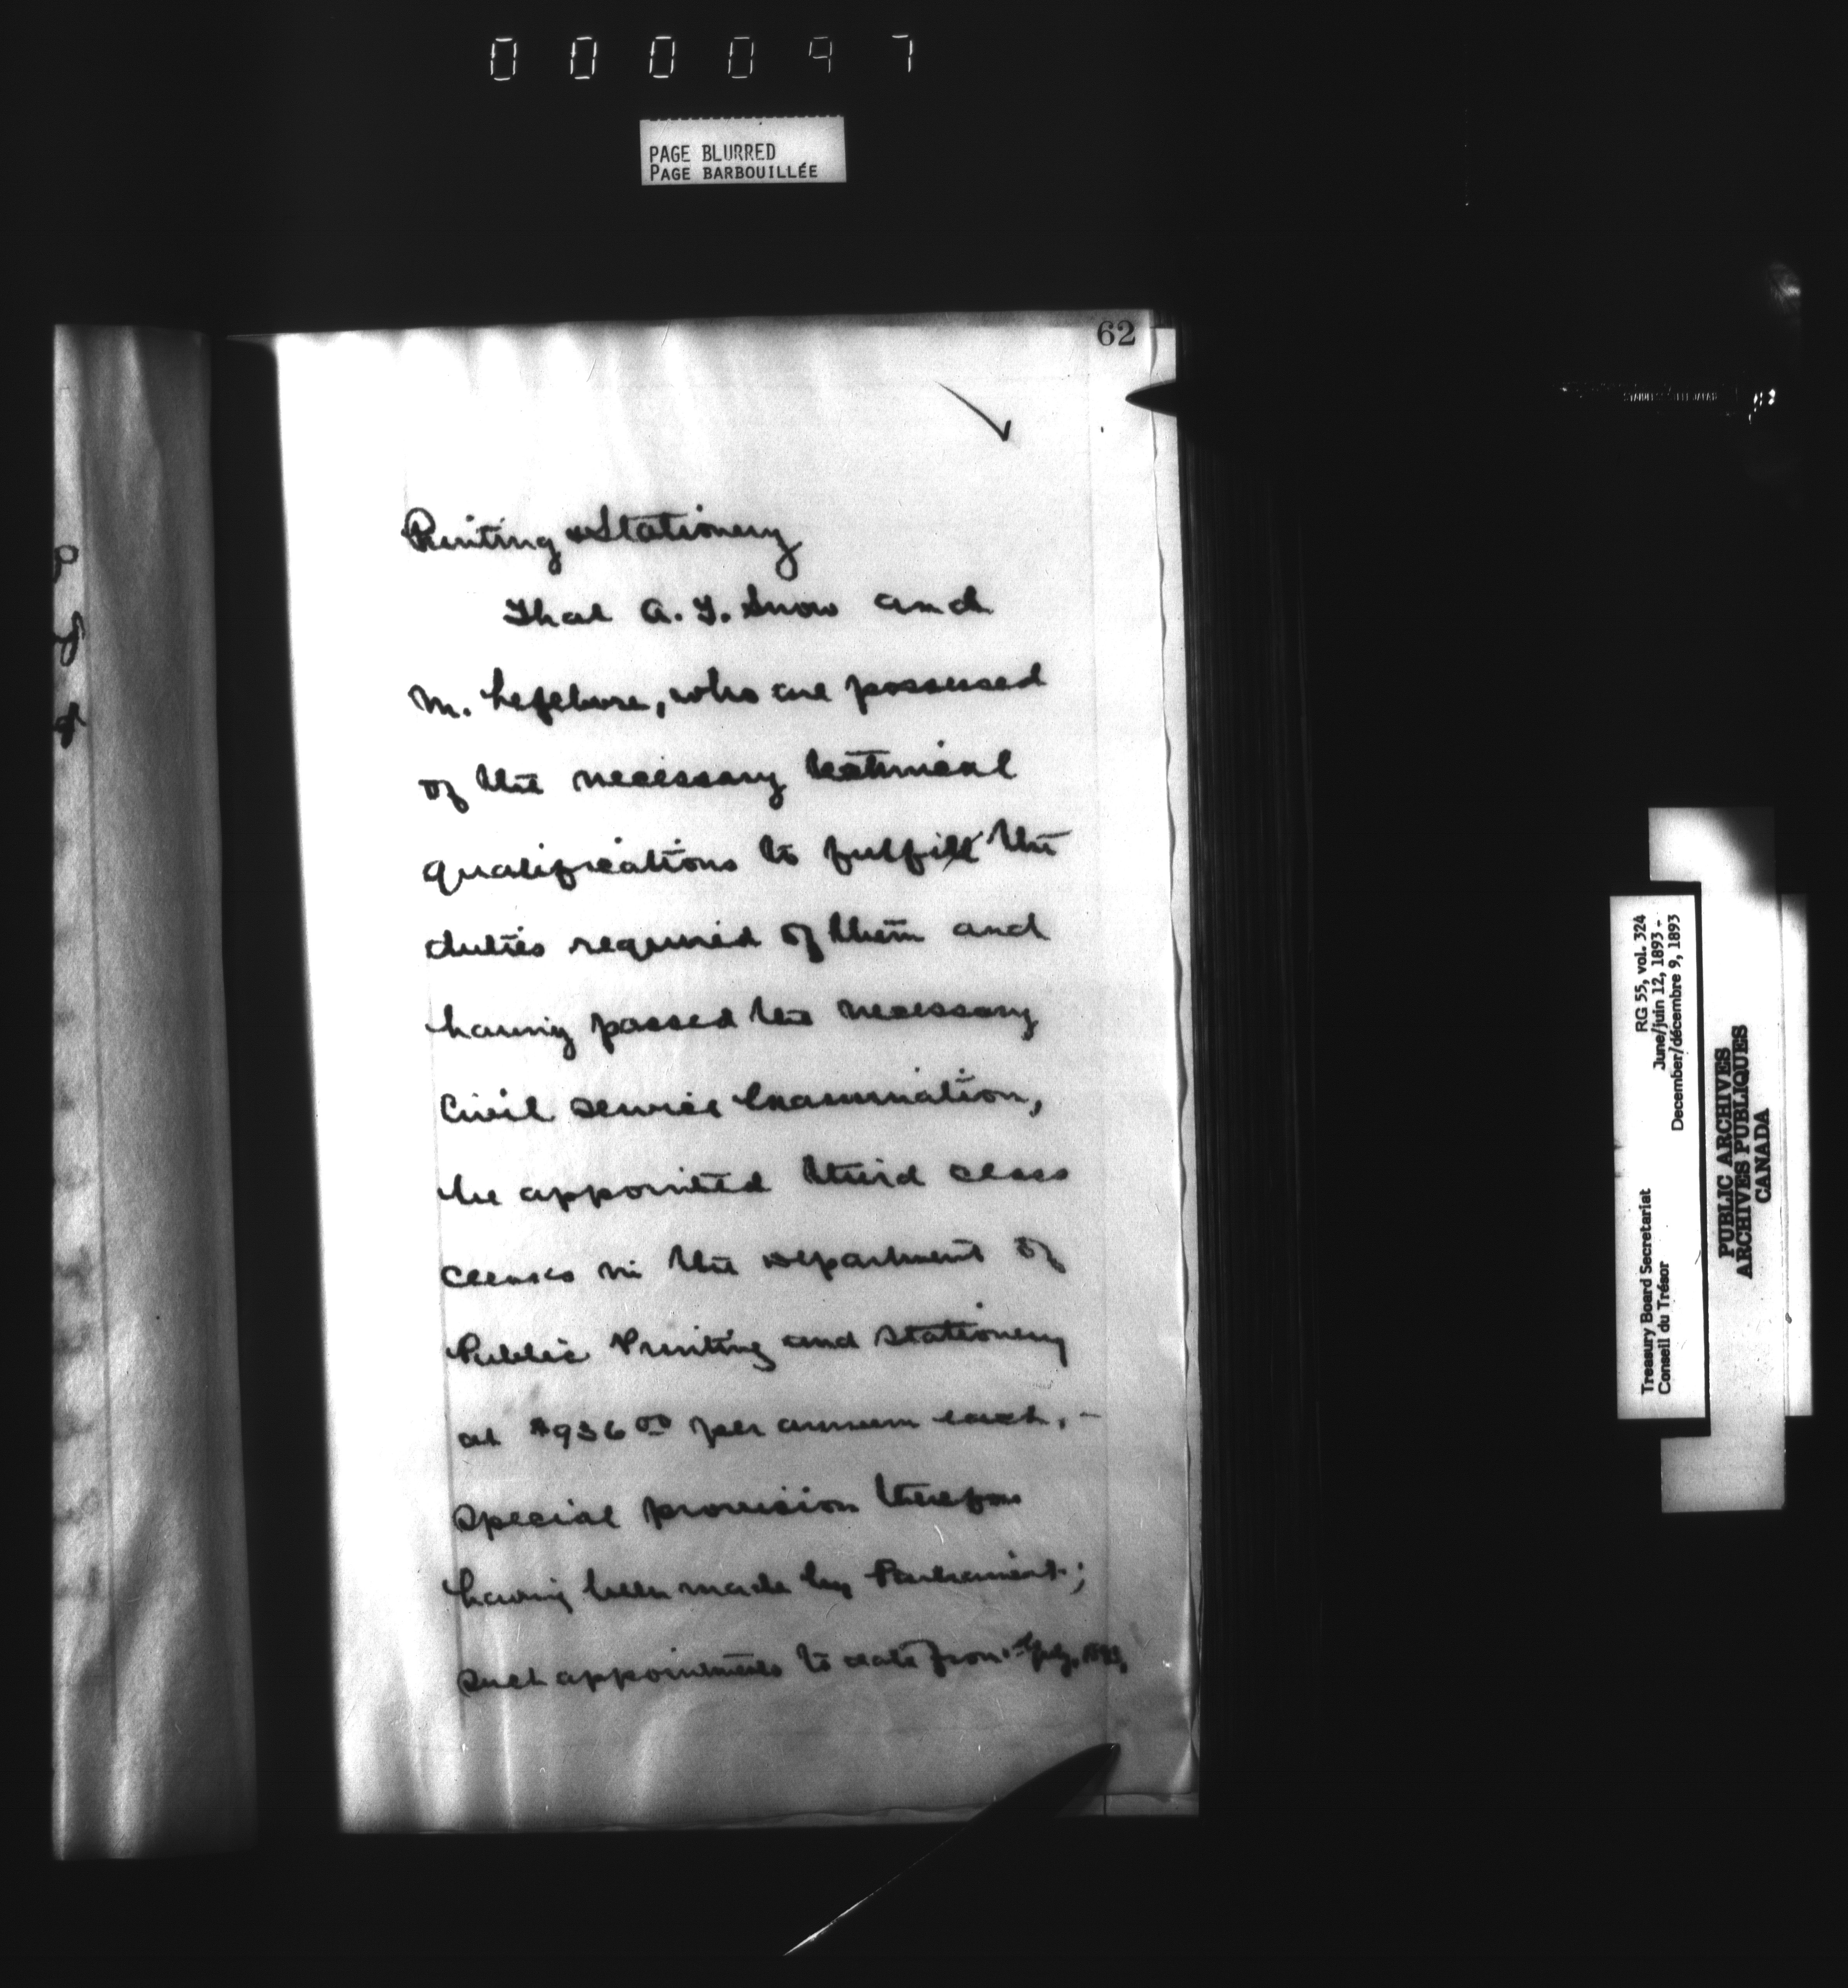 000097
PAGE BLURRED
PAGE BARBOUILLÉE
62
Printing & Stationery
That A. T. Snow and
M. Lefebvre, who are possessed
of the necessary technical
qualifications to fulfill the
duties required of them and
having passed the necessary
Civil Service Examination,
be appointed third class
clerks in the Department of
Public Printing and Stationery
at $936 00 per annum each, -
special provision therefor
having been made by Parliament;
such appointments to date from 1st July, 1893.
Treasury Board Secretariat RG 55, vol. 324
Conseil du Trésor June/juin 12, 1893 -
December/décembre 9, 1893
PUBLIC ARCHIVES
ARCHIVES PUBLIQUES
CANADA